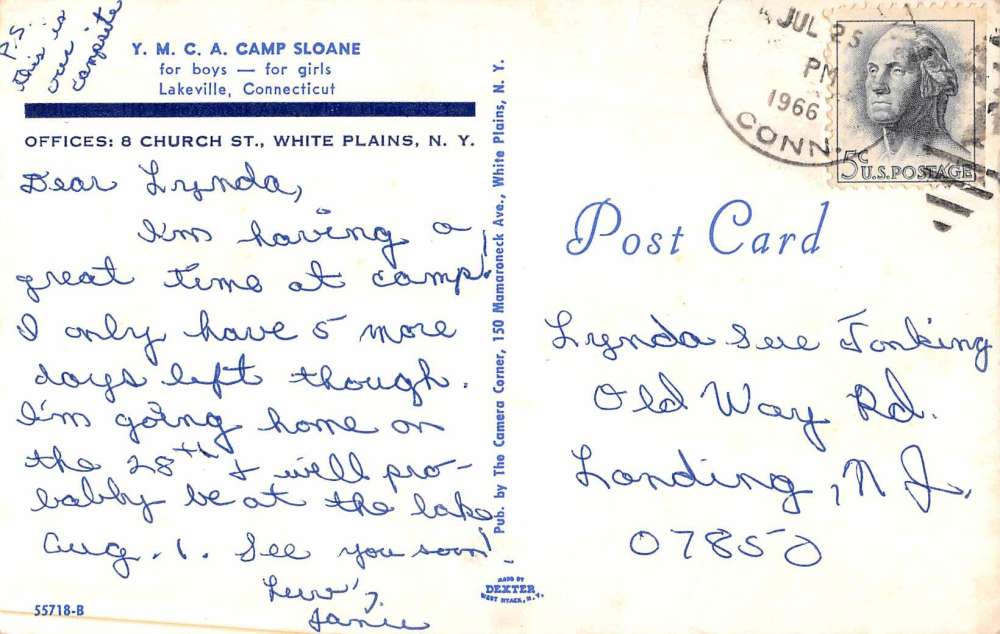 P.S.
this is
our
campsite
Y. M. C. A. CAMP SLOANE
for boys — for girls
Lakeville, Connecticut
OFFICES: 8 CHURCH ST., WHITE PLAINS, N. Y.
Dear Lynda,
I'm having a
great time at camp!
I only have 5 more
days left though.
I'm going home on
the 28th & will pro-
babby be at the lake
Aug. 1. See you soon!
Luv,
Janie
55718-B
Pub. by The Camera Corner, 150 Mamaroneck Ave., White Plains, N. Y.
MADE BY
DEXTER
WEST NYACK, N. Y.
JUL 25
PM
1966
CONN.
5¢
U.S. POSTAGE
Post Card
Lynda Sue Tonking
Old Way Rd.
Landing, N J,
07850